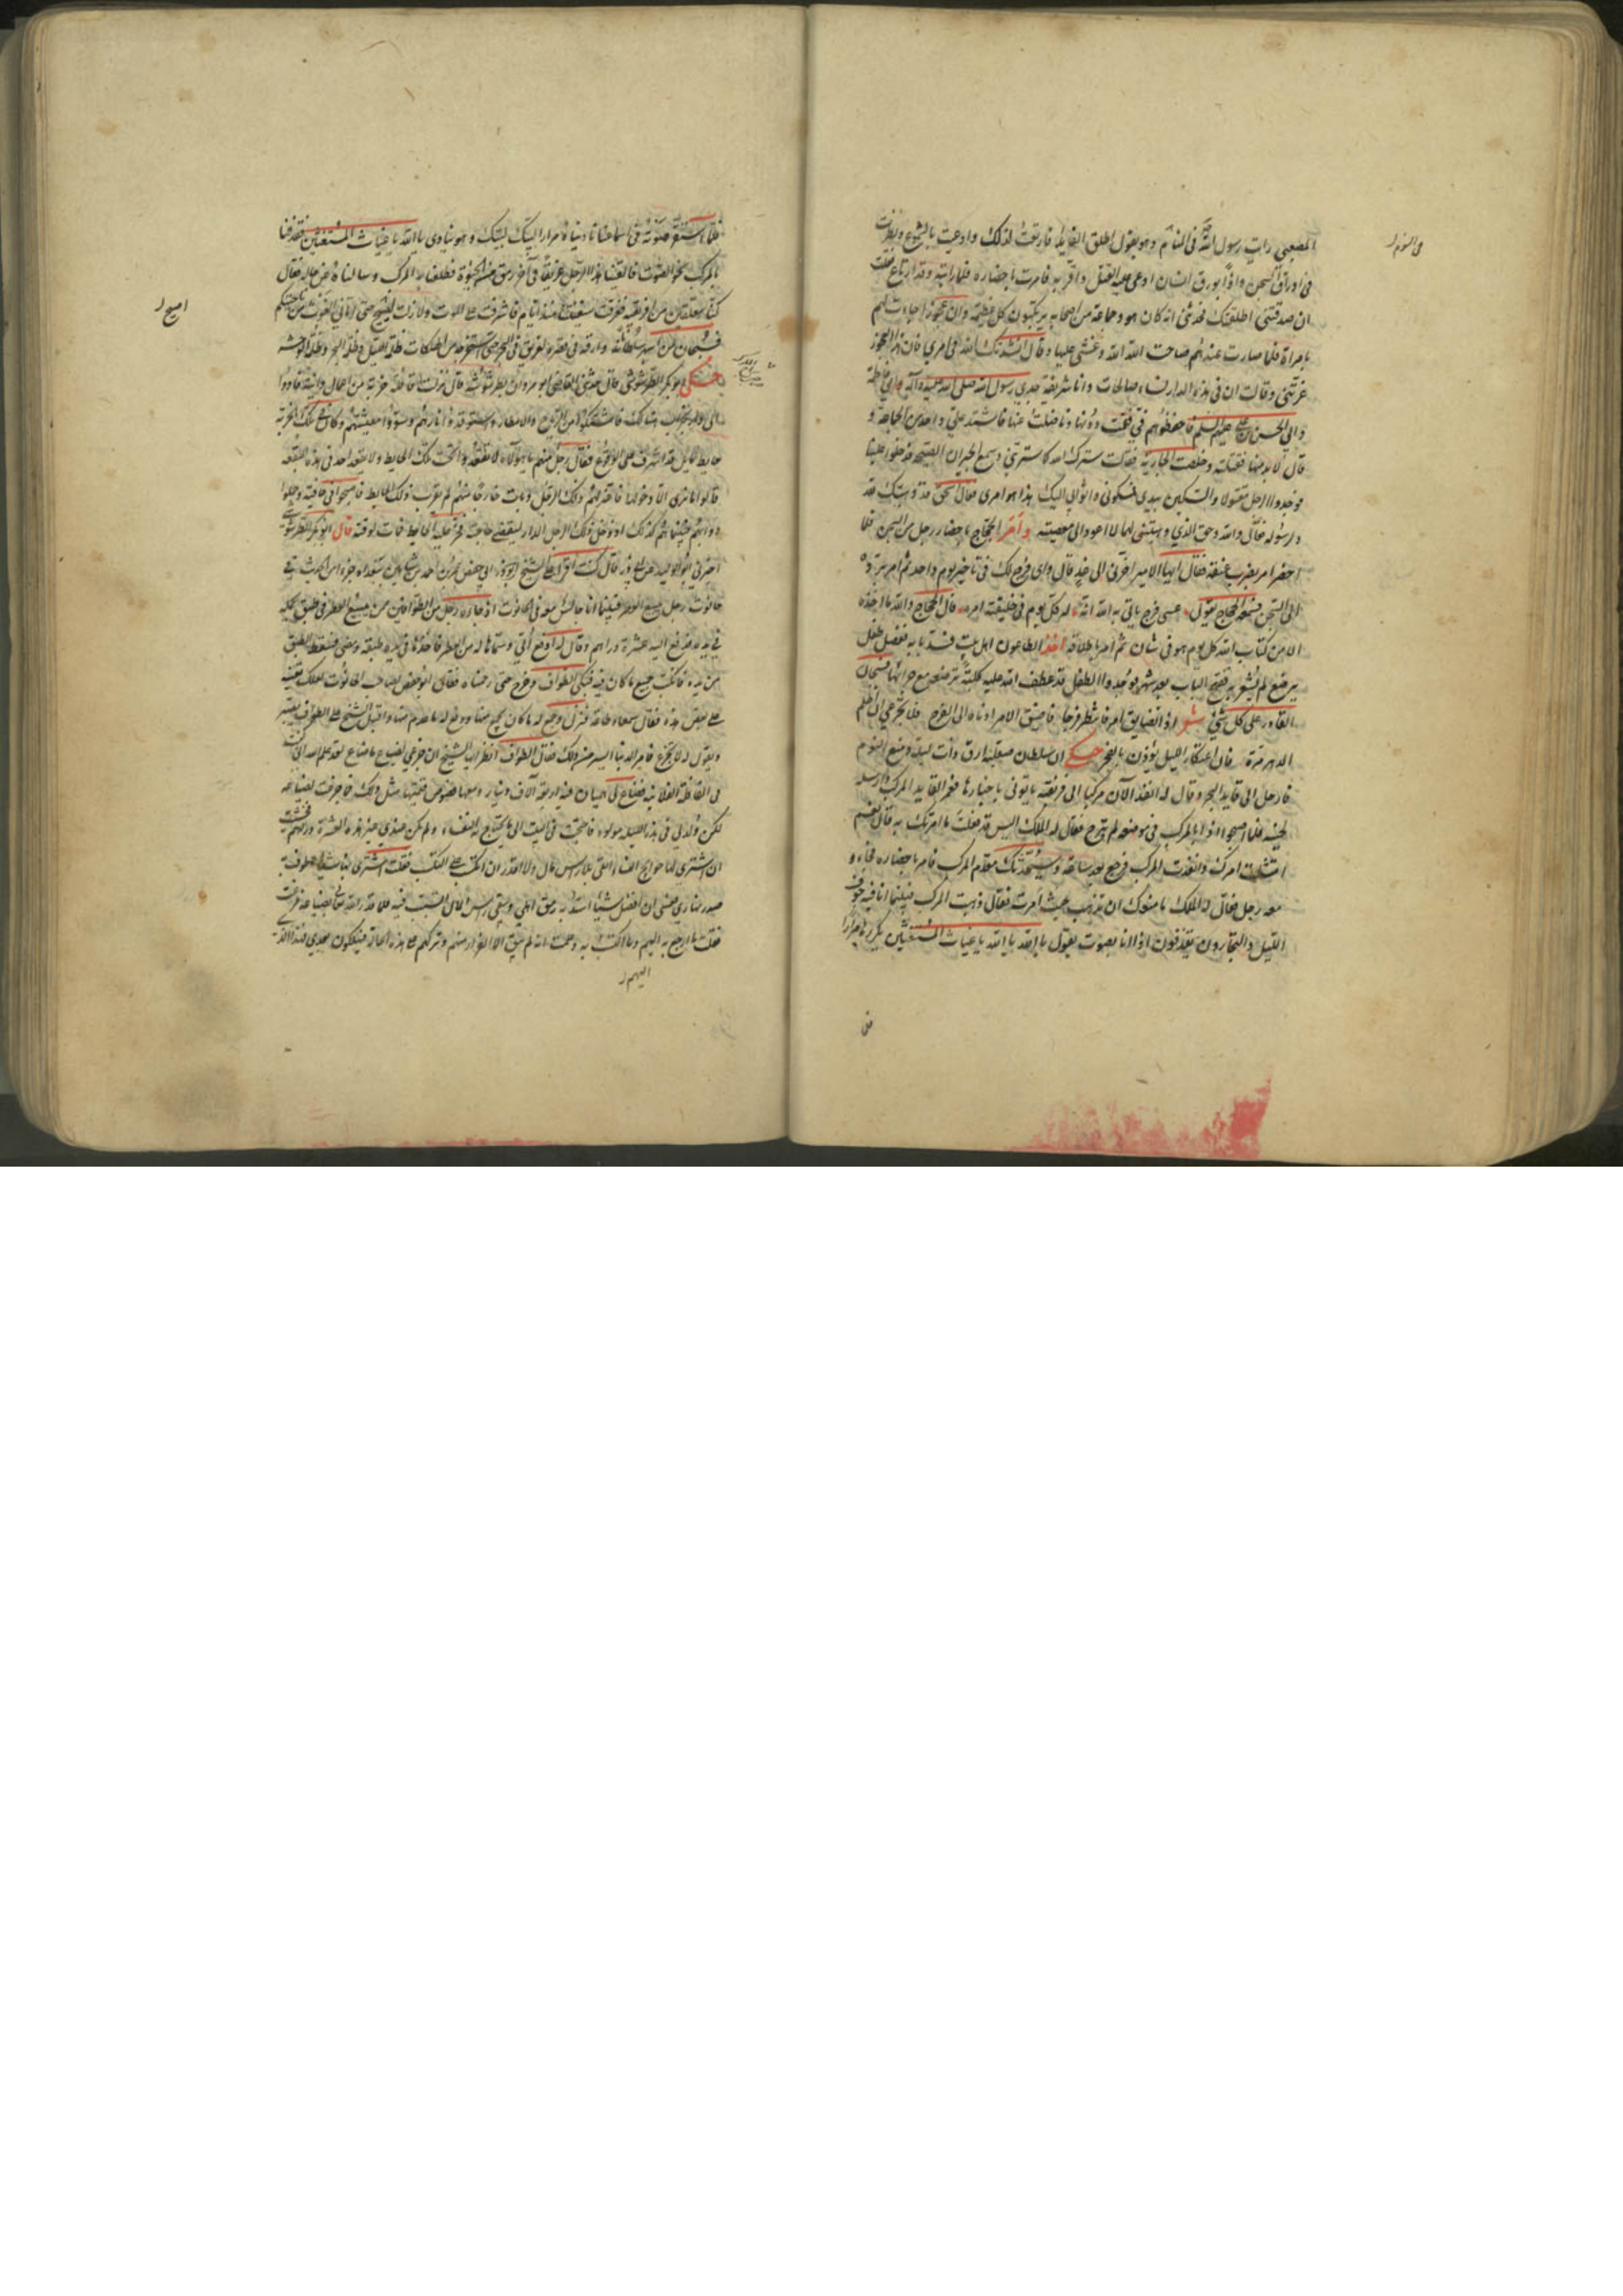 المصعبي رايت رسول الله في النائم وهو يقول اطلق القاتل فارتعت لذلك ودعيت بالشموع ونظرت
في اوراق السجن واذا بورق انسان ادعي عليه القتل واقر به فامرت باحضاره فلما رايته وقد ارتاع فقلت
ان صدقتني اطلقتك فحدثني انه كان هو وجماعة من اصحابه يرتكبون كل عظيمة وان عجوزا جاءت لهم
بامراة فلما صارت عندهم صاحت الله الله وغشي عليها وقالت انشدتك الله في امري فان هذه العجوز
غرتني وقالت ان في هذه الدار نساء صالحات وانا شريفة جدي رسول الله صلى الله عليه وآله وامي فاطمة
وابي الحسين بن علي عليهم السلم فاحفظوهم في فقمت دونها وناضلت عنها فاشتد علي واحد من الجماعة و
قال لا بد منها فقتلته وخلصت الجارية فقالت سترك الله كما سترتني وسمع الجيران الصيحة فدخلوا علينا
فوجدوا الرجل مقتولا والسكين بيدي فمسكوني واتوا بي اليك هذا هو امري فقال اسحق قد وهبتك لله
ورسوله فقال والله وحق الذي وهبتني لهما لا اعود الى معصيته وامر الحجاج باحضار رجل من السجن فلما
احضر امر بضرب عنقه فقال ايها الامير اخرني الى غد قال واي فرج لك في تاخير يوم واحد ثم امر برده
الى السجن فسمعه الحجاج يقول عسى فرج ياتي به الله انه له كل يوم في خليقته امر فقال الحجاج والله ما اخذه
الا من كتاب الله كل يوم هو في شان ثم امر باطلاقه اخذ الطاعون اهل بيت فسد بابه ففضل طفل
يرضع لم يشعر به ففتح الباب بعد شهر فوجدوا الطفل قد عطف الله عليه كلبة ترضعه مع جرائها فسبحان
القادر على كل شيء شعر اذا تضايق امر فانتظر فرجا فاضيق الامر ادناه الى الفرج فلا تجزعي ان اظلم
الدهر مرة فان اعتكار الليل يؤذن بالفجر حكي ان سلطان صقلية ارق ذات ليلة ومنع النوم
فارسل الى قايد البحر وقال له انفذ الآن مركبا الى افريقية ياتوني باخبارها فعمر القايد المركب وارسله
لحينه فلما اصبحوا اذا بالمركب في موضعه لم يبرح فقال له الملك اليس قد فعلت ما امرتك به قال نعم
امتثلت امرك وانفذت المركب فرجع بعد ساعة وسيحدثك مقدم المركب فامر باحضاره فجاء و
معه رجل فقال له الملك ما منعك ان تذهب حيث امرت فقال ذهبت بالمركب فبينما انا في جوف
الليل والبحارون يقذفون اذا انا بصوت يقول يا الله يا الله يا غياث المستغيثين يكررها مرارا
في النوم
فلما استقر صوته في اسماعنا ناديناه مرارا لبيك لبيك وهو ينادي يا الله يا غياث المستغيثين فقذفنا
بالمركب نحو الصوت فالقينا هذا الرجل غريقا في آخر رمق من الحيوة فطلعنا به المركب وسالناه عن حاله فقال
كنا مقلعين من افريقية فغرقت سفينتنا منذ ايام فاشرفت على الموت ولا زلت اصيح حتى اتاني الغوث من ناحيتكم
فسبحان من اسهر سلطانه وارقه في قصره لغريق في البحر حتى استخرجه من ظلمات ظلمة الليل وظلمة البحر وظلمة الوحشة
حكى ابو بكر الطرطوشي قال حدثني القاضي ابو مروان بطرطوشة قال نزلت قافلة خربة من اعمال دانية فاووا
الى هناك فاستكنوا من الرياح والامطار واستوقدوا نارهم وسووا معيشتهم وكان في تلك الخربة
حايط مايل قد اشرف على الوقوع فقال رجل منهم يا هؤلاء لا تقعدوا تحت تلك الحايط ولا يقعد احد في هذه البقعة
فابوا الا دخولها فاعتزلهم ذلك الرجل وبات خارجا منهم لم يقرب ذلك الحايط فاصبحوا في عافية وحملوا
دوابهم فبينما هم كذلك اذ دخل ذلك الرجل الدار ليقضي حاجة فخر عليه الحايط فمات لوقته قال ابو بكر الطرطوشي
اخبرني ابو الوليد عن ابي ذر قال كنت اقرا على الشيخ ابي حفص عمر بن احمد بن شاهين ببغداد جزءا من الحديث في
حانوت رجل يبيع العطر فبينما انا جالس معه في الحانوت اذ جاءه رجل من الطوافين ممن يبيع العطر في طبق يحمله
في يده فدفع اليه عشرة دراهم وقال له ادفع الي وسماها له من العطر فاخذها في طبقه ومضى فسقط الطبق
من يده فانكب جميع ما كان فيه فبكى الطواف وجزع حتى رحمناه فقال ابو حفص لصاحب الحانوت لعلك تعينه
على بعض هذه فقال سمعا وطاعة فنزل وجمع له ما كان منها ودفع له ما عدم منها واقبل الشيخ على الطواف يصبره
ويقول له لا تجزع فامر الدنيا ايسر من ذلك فقال الطواف انظر ايها الشيخ ان جزعي لضياع ما ضاع لقد علم الله اني كنت
في القافلة الفلانية فضاع لي هميان فيه اربعة آلاف دينار ومعها فصوص قيمتها مثل ذلك فما جزعت لضياعه
لكن ولد لي في هذه الليلة مولود فاحتجت في البيت الى ما يحتاج له النفساء ولم يكن عندي غير هذه العشرة دراهم فخشيت
ان اشتري بها حوايج النفساء فابقى بلا راس مال ولا اقدر ان اكتسب على التكسب فقلت اشتري بها شيئا اطوف به
صدر نهاري فعسى ان افضل شيئا اسد به رمق اهلي ويبقى راس المال اتسبب فيه فلما قدر الله تعالى بضياعه جزعت
فقلت ما ارجع به اليهم وما اكتسب به وعلمت انه لم يبق الا الفرار منهم وتركهم على هذه الحالة فيهلكون بعدي فهذا الذي
اصبح
اليهم